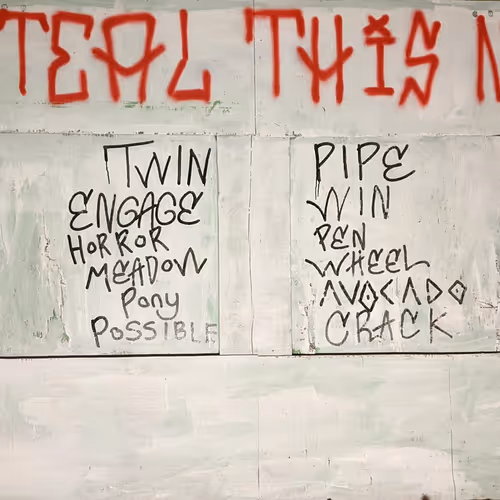 TEAL THIS
TWIN
ENGAGE
HORROR
MEADOW
Pony
POSSIBLE
PIPE
WIN
PEN
WHEEL
AVOCADO
CRACK